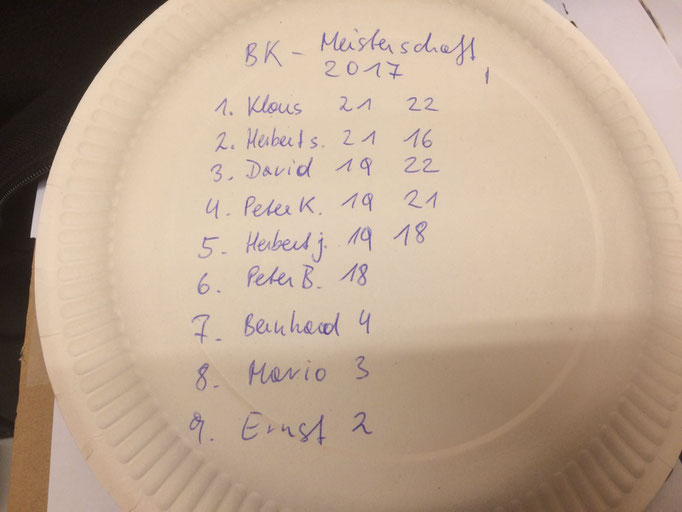 BK - Meisterschaft
2017
1. Klaus 21 22
2. Herbert s. 21 16
3. David 19 22
4. Peter K. 19 21
5. Herbert j. 19 18
6. Peter B. 18
7. Bernhard 4
8. Mario 3
9. Ernst 2